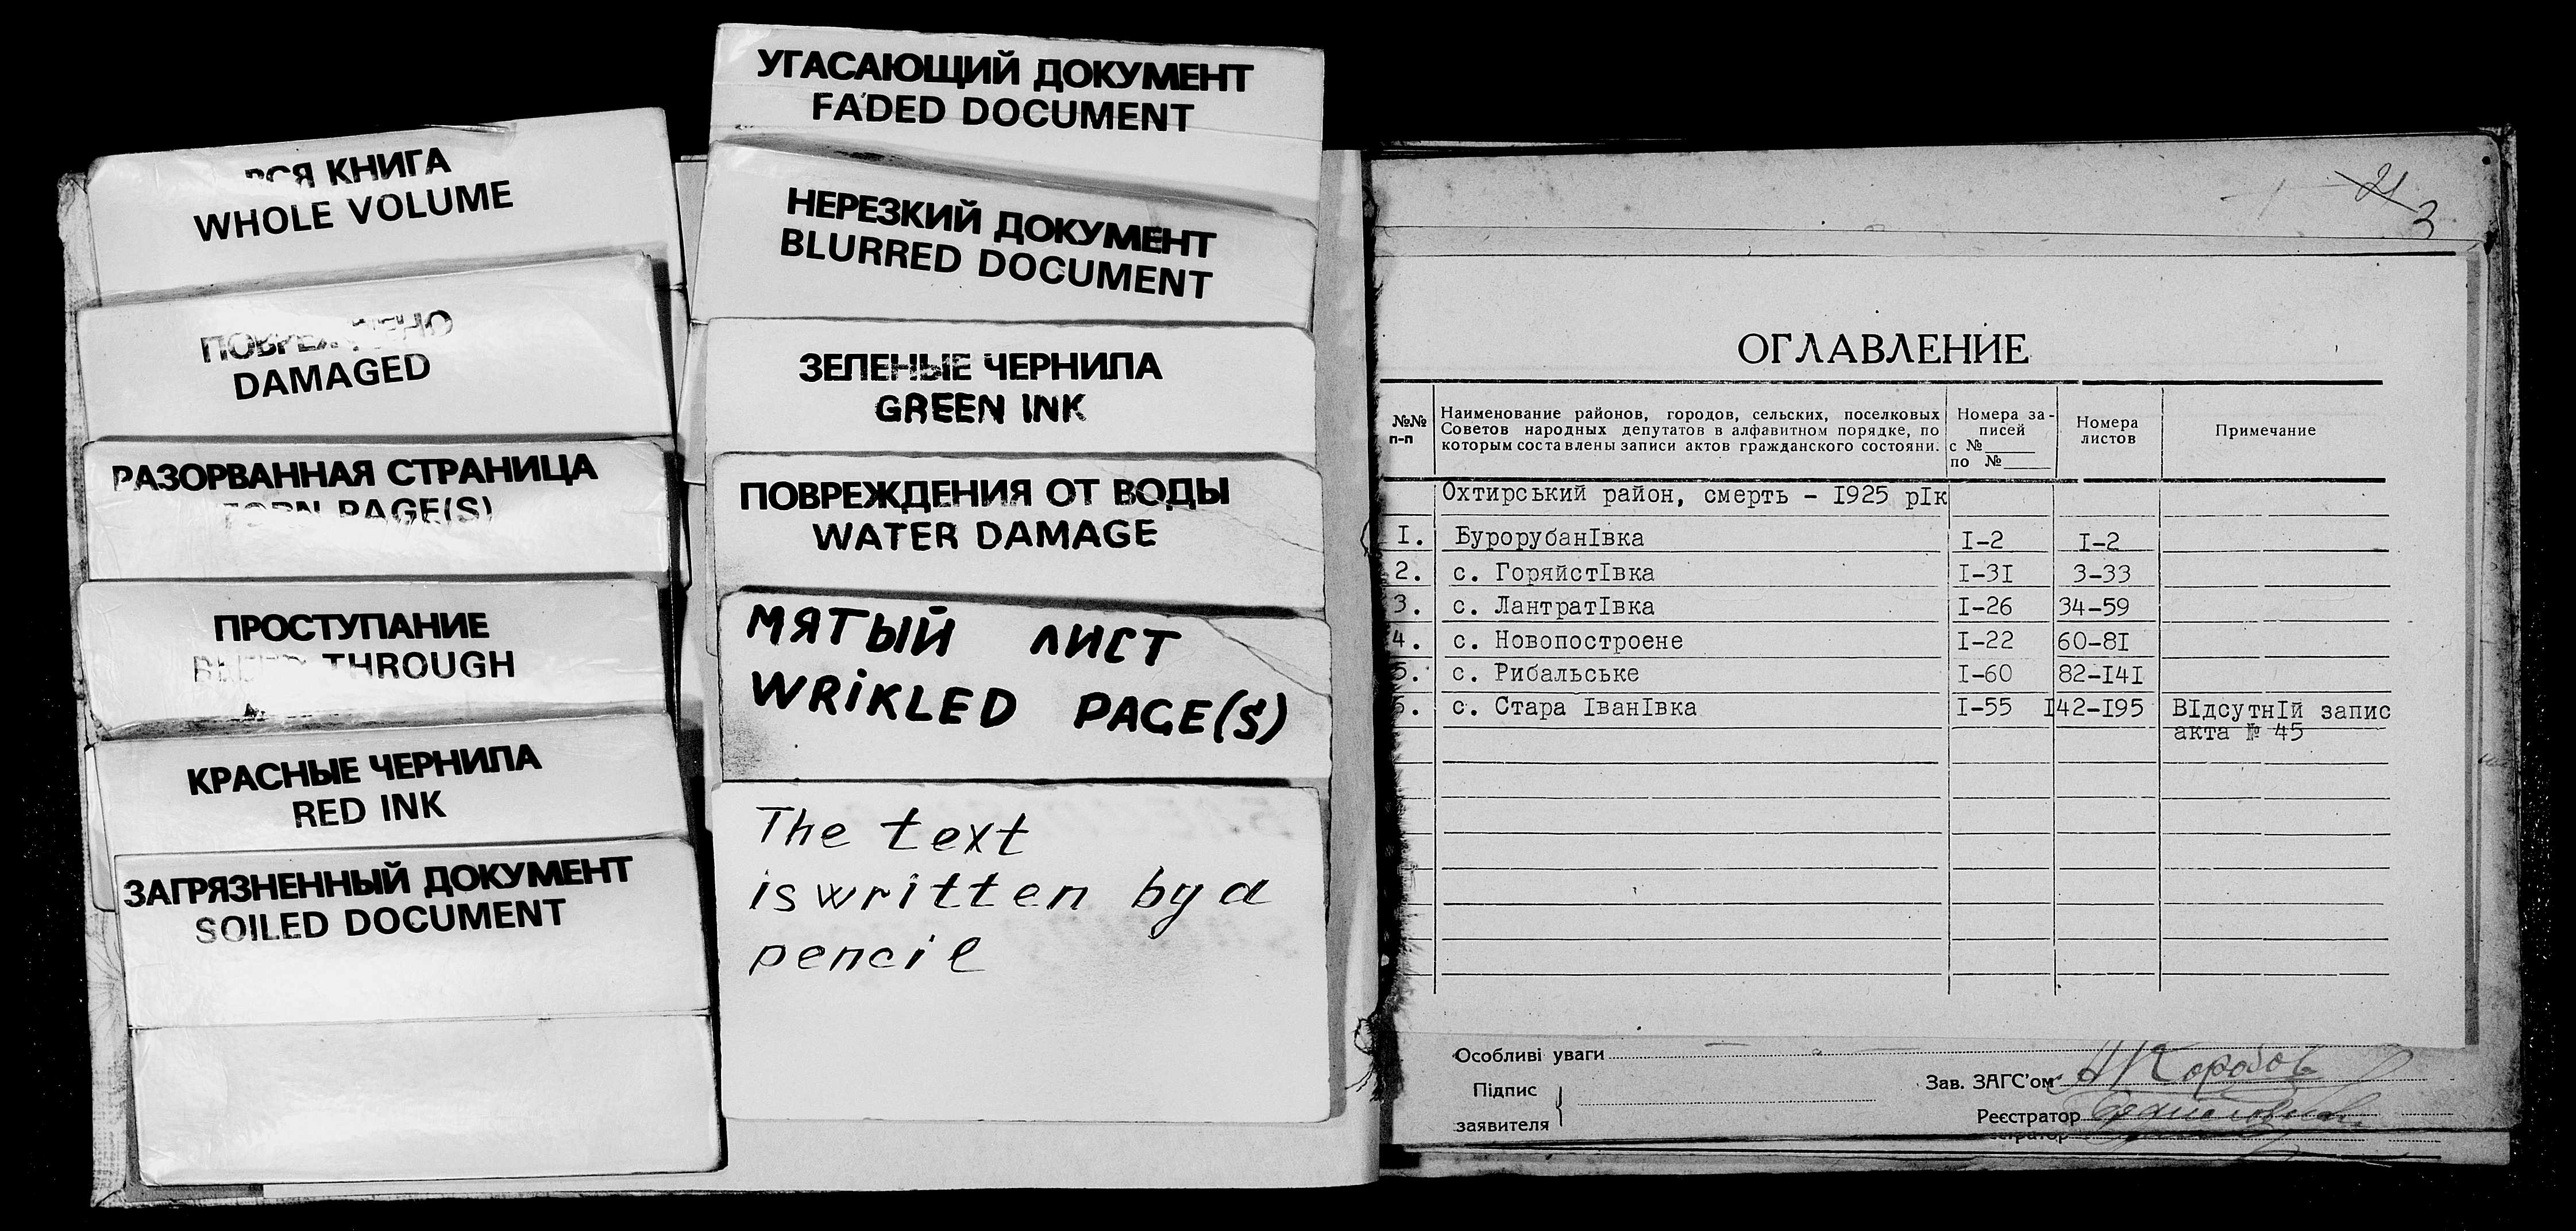 КНИГА
WHOLE VOLUME
DAMAGED
РАЗОРВАННАЯ СТРАНИЦА
PAGE(S)
ПРОСТУПАНИЕ
THROUGH
КРАСНЫЕ ЧЕРНИЛА
RED INK
ЗАГРЯЗНЕННЫЙ ДОКУМЕНТ
SOILED DOCUMENT
УГАСАЮЩИЙ ДОКУМЕНТ
FADED DOCUMENT
НЕРЕЗКИЙ ДОКУМЕНТ
BLURRED DOCUMENT
ЗЕЛЕНЫЕ ЧЕРНИЛА
GREEN INK
ПОВРЕЖДЕНИЯ ОТ ВОДЫ
WATER DAMAGE
МЯТЫЙ ЛИСТ
WRiKLED PAGE(S)
The text
is written by a
pencil
21
3
ОГЛАВЛЕНИЕ
№№ п-п
Наименование районов, городов, сельских, поселковых
Советов народных депутатов в алфавитном порядке, по
которым составлены записи актов гражданского состояни.
Номера за-
писей
с №
по №
Номера
листов
Примечание
Охтирський район, смерть - I925 рIк
I. БурорубанIвка I-2 I-2
2. с. ГоряйстIвка I-3I 3-33
3. с. ЛантратIвка I-26 34-59
4. с. Новопостроене I-22 60-8I
5. с. Рибальське I-60 82-I4I
с. Стара IванIвка I-55 I42-I95 ВIдсутнIй запис
акта № 45
Особливі уваги
Підпис
заявителя
Зав. ЗАГС'ом
Реєстратор